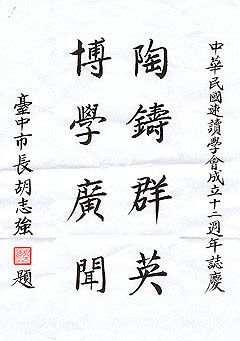 中華民國速讀學會成立十二週年誌慶
陶鑄群英
博學廣聞
臺中市長胡志強
題